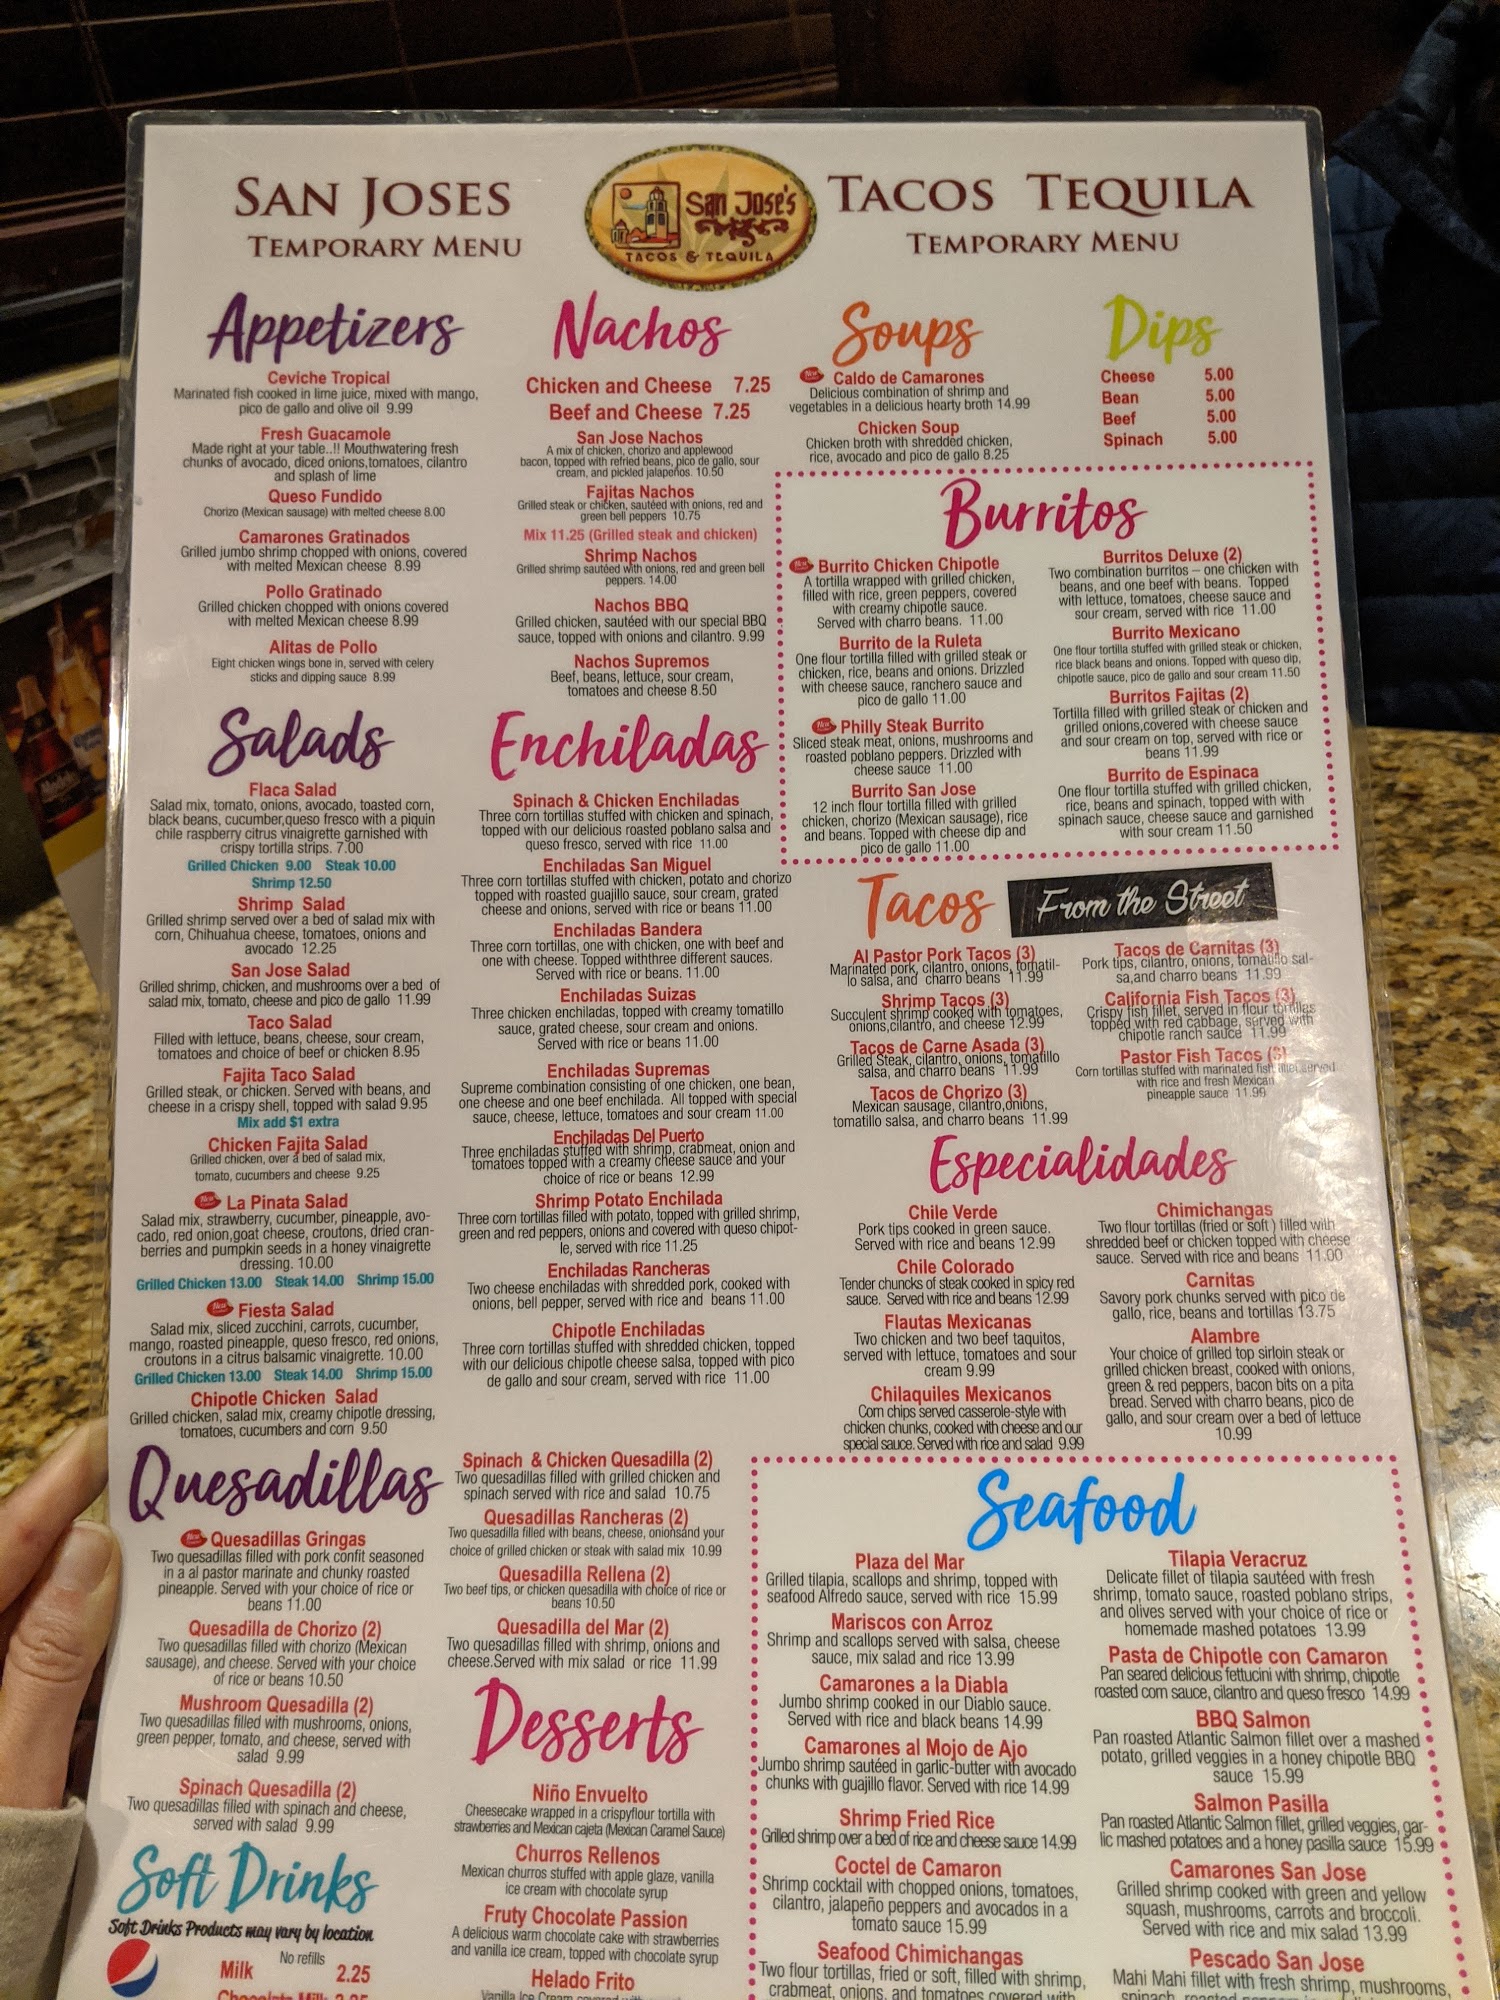 SAN JOSES
TEMPORARY MENU
San Jose's
TACOS & TEQUILA
TACOS TEQUILA
TEMPORARY MENU
Appetizers
Ceviche Tropical
Marinated fish cooked in lime juice, mixed with mango,
pico de gallo and olive oil 9.99
Fresh Guacamole
Made right at your table..!! Mouthwatering fresh
chunks of avocado, diced onions,tomatoes, cilantro
and splash of lime
Queso Fundido
Chorizo (Mexican sausage) with melted cheese 8.00
Camarones Gratinados
Grilled jumbo shrimp chopped with onions, covered
with melted Mexican cheese 8.99
Pollo Gratinado
Grilled chicken chopped with onions covered
with melted Mexican cheese 8.99
Alitas de Pollo
Eight chicken wings bone in, served with celery
sticks and dipping sauce 8.99
Nachos
Chicken and Cheese 7.25
Beef and Cheese 7.25
San Jose Nachos
A mix of chicken, chorizo and applewood
bacon, topped with refried beans, pico de gallo, sour
cream, and pickled jalapeños. 10.50
Fajitas Nachos
Grilled steak or chicken, sautéed with onions, red and
green bell peppers 10.75
Mix 11.25 (Grilled steak and chicken)
Shrimp Nachos
Grilled shrimp sautéed with onions, red and green bell
peppers. 14.00
Nachos BBQ
Grilled chicken, sautéed with our special BBQ
sauce, topped with onions and cilantro. 9.99
Nachos Supremos
Beef, beans, lettuce, sour cream,
tomatoes and cheese 8.50
Soups
New Caldo de Camarones
Delicious combination of shrimp and
vegetables in a delicious hearty broth 14.99
Chicken Soup
Chicken broth with shredded chicken,
rice, avocado and pico de gallo 8.25
Dips
Cheese 5.00
Bean 5.00
Beef 5.00
Spinach 5.00
Burritos
New Burrito Chicken Chipotle
A tortilla wrapped with grilled chicken,
filled with rice, green peppers, covered
with creamy chipotle sauce.
Served with charro beans. 11.00
Burrito de la Ruleta
One flour tortilla filled with grilled steak or
chicken, rice, beans and onions. Drizzled
with cheese sauce, ranchero sauce and
pico de gallo 11.00
New Philly Steak Burrito
Sliced steak meat, onions, mushrooms and
roasted poblano peppers. Drizzled with
cheese sauce 11.00
Burrito San Jose
12 inch flour tortilla filled with grilled
chicken, chorizo (Mexican sausage), rice
and beans. Topped with cheese dip and
pico de gallo 11.00
Burritos Deluxe (2)
Two combination burritos – one chicken with
beans, and one beef with beans. Topped
with lettuce, tomatoes, cheese sauce and
sour cream, served with rice 11.00
Burrito Mexicano
One flour tortilla stuffed with grilled steak or chicken,
rice black beans and onions. Topped with queso dip,
chipotle sauce, pico de gallo and sour cream 11.50
Burritos Fajitas (2)
Tortilla filled with grilled steak or chicken and
grilled onions,covered with cheese sauce
and sour cream on top, served with rice or
beans 11.99
Burrito de Espinaca
One flour tortilla stuffed with grilled chicken,
rice, beans and spinach, topped with with
spinach sauce, cheese sauce and garnished
with sour cream 11.50
Salads
Flaca Salad
Salad mix, tomato, onions, avocado, toasted corn,
black beans, cucumber,queso fresco with a piquin
chile raspberry citrus vinaigrette garnished with
crispy tortilla strips. 7.00
Grilled Chicken 9.00 Steak 10.00
Shrimp 12.50
Shrimp Salad
Grilled shrimp served over a bed of salad mix with
corn, Chihuahua cheese, tomatoes, onions and
avocado 12.25
San Jose Salad
Grilled shrimp, chicken, and mushrooms over a bed of
salad mix, tomato, cheese and pico de gallo 11.99
Taco Salad
Filled with lettuce, beans, cheese, sour cream,
tomatoes and choice of beef or chicken 8.95
Fajita Taco Salad
Grilled steak, or chicken. Served with beans, and
cheese in a crispy shell, topped with salad 9.95
Mix add $1 extra
Chicken Fajita Salad
Grilled chicken, over a bed of salad mix,
tomato, cucumbers and cheese 9.25
New La Pinata Salad
Salad mix, strawberry, cucumber, pineapple, avo-
cado, red onion,goat cheese, croutons, dried cran-
berries and pumpkin seeds in a honey vinaigrette
dressing. 10.00
Grilled Chicken 13.00 Steak 14.00 Shrimp 15.00
New Fiesta Salad
Salad mix, sliced zucchini, carrots, cucumber,
mango, roasted pineapple, queso fresco, red onions,
croutons in a citrus balsamic vinaigrette. 10.00
Grilled Chicken 13.00 Steak 14.00 Shrimp 15.00
Chipotle Chicken Salad
Grilled chicken, salad mix, creamy chipotle dressing,
tomatoes, cucumbers and corn 9.50
Enchiladas
Spinach & Chicken Enchiladas
Three corn tortillas stuffed with chicken and spinach,
topped with our delicious roasted poblano salsa and
queso fresco, served with rice 11.00
Enchiladas San Miguel
Three corn tortillas stuffed with chicken, potato and chorizo
topped with roasted guajillo sauce, sour cream, grated
cheese and onions, served with rice or beans 11.00
Enchiladas Bandera
Three corn tortillas, one with chicken, one with beef and
one with cheese. Topped withthree different sauces.
Served with rice or beans. 11.00
Enchiladas Suizas
Three chicken enchiladas, topped with creamy tomatillo
sauce, grated cheese, sour cream and onions.
Served with rice or beans 11.00
Enchiladas Supremas
Supreme combination consisting of one chicken, one bean,
one cheese and one beef enchilada. All topped with special
sauce, cheese, lettuce, tomatoes and sour cream 11.00
Enchiladas Del Puerto
Three enchiladas stuffed with shrimp, crabmeat, onion and
tomatoes topped with a creamy cheese sauce and your
choice of rice or beans 12.99
Shrimp Potato Enchilada
Three corn tortillas filled with potato, topped with grilled shrimp,
green and red peppers, onions and covered with queso chipot-
le, served with rice 11.25
Enchiladas Rancheras
Two cheese enchiladas with shredded pork, cooked with
onions, bell pepper, served with rice and beans 11.00
Chipotle Enchiladas
Three corn tortillas stuffed with shredded chicken, topped
with our delicious chipotle cheese salsa, topped with pico
de gallo and sour cream, served with rice 11.00
Tacos From the Street
Al Pastor Pork Tacos (3)
Marinated pork, cilantro, onions, tomatil-
lo salsa, and charro beans 11.99
Shrimp Tacos (3)
Succulent shrimp cooked with tomatoes,
onions,cilantro, and cheese 12.99
Tacos de Carne Asada (3)
Grilled Steak, cilantro, onions, tomatillo
salsa, and charro beans 11.99
Tacos de Chorizo (3)
Mexican sausage, cilantro,onions,
tomatillo salsa, and charro beans 11.99
Tacos de Carnitas (3)
Pork tips, cilantro, onions, tomatillo sal-
sa,and charro beans 11.99
California Fish Tacos (3)
Crispy fish fillet, served in flour tortillas
topped with red cabbage, served with
chipotle ranch sauce 11.99
Pastor Fish Tacos (3)
Corn tortillas stuffed with marinated fish fillet served
with rice and fresh Mexican
pineapple sauce 11.99
Especialidades
Chile Verde
Pork tips cooked in green sauce.
Served with rice and beans 12.99
Chile Colorado
Tender chuncks of steak cooked in spicy red
sauce. Served with rice and beans 12.99
Flautas Mexicanas
Two chicken and two beef taquitos,
served with lettuce, tomatoes and sour
cream 9.99
Chilaquiles Mexicanos
Corn chips served casserole-style with
chicken chunks, cooked with cheese and our
special sauce. Served with rice and salad 9.99
Chimichangas
Two flour tortillas (fried or soft ) filled with
shredded beef or chicken topped with cheese
sauce. Served with rice and beans 11.00
Carnitas
Savory pork chunks served with pico de
gallo, rice, beans and tortillas 13.75
Alambre
Your choice of grilled top sirloin steak or
grilled chicken breast, cooked with onions,
green & red peppers, bacon bits on a pita
bread. Served with charro beans, pico de
gallo, and sour cream over a bed of lettuce
10.99
Quesadillas
New Quesadillas Gringas
Two quesadillas filled with pork confit seasoned
in a al pastor marinate and chunky roasted
pineapple. Served with your choice of rice or
beans 11.00
Quesadilla de Chorizo (2)
Two quesadillas filled with chorizo (Mexican
sausage), and cheese. Served with your choice
of rice or beans 10.50
Mushroom Quesadilla (2)
Two quesadillas filled with mushrooms, onions,
green pepper, tomato, and cheese, served with
salad 9.99
Spinach Quesadilla (2)
Two quesadillas filled with spinach and cheese,
served with salad 9.99
Spinach & Chicken Quesadilla (2)
Two quesadillas filled with grilled chicken and
spinach served with rice and salad 10.75
Quesadillas Rancheras (2)
Two quesadilla filled with beans, cheese, onionsand your
choice of grilled chicken or steak with salad mix 10.99
Quesadilla Rellena (2)
Two beef tips, or chicken quesadilla with choice of rice or
beans 10.50
Quesadilla del Mar (2)
Two quesadillas filled with shrimp, onions and
cheese.Served with mix salad or rice 11.99
Soft Drinks
Soft Drinks Products may vary by location
No refills
Milk 2.25
Chocolate Milk 2.25
Desserts
Niño Envuelto
Cheesecake wrapped in a crispyflour tortilla with
strawberries and Mexican cajeta (Mexican Caramel Sauce)
Churros Rellenos
Mexican churros stuffed with apple glaze, vanilla
ice cream with chocolate syrup
Fruty Chocolate Passion
A delicious warm chocolate cake with strawberries
and vanilla ice cream, topped with chocolate syrup
Helado Frito
Vanilla Ice Cream covered with
Seafood
Plaza del Mar
Grilled tilapia, scallops and shrimp, topped with
seafood Alfredo sauce, served with rice 15.99
Mariscos con Arroz
Shrimp and scallops served with salsa, cheese
sauce, mix salad and rice 13.99
Camarones a la Diabla
Jumbo shrimp cooked in our Diablo sauce.
Served with rice and black beans 14.99
Camarones al Mojo de Ajo
Jumbo shrimp sautéed in garlic-butter with avocado
chunks with guajillo flavor. Served with rice 14.99
Shrimp Fried Rice
Grilled shrimp over a bed of rice and cheese sauce 14.99
Coctel de Camaron
Shrimp cocktail with chopped onions, tomatoes,
cilantro, jalapeño peppers and avocados in a
tomato sauce 15.99
Seafood Chimichangas
Two flour tortillas, fried or soft, filled with shrimp,
crabmeat, onions, and tomatoes covered with
Tilapia Veracruz
Delicate fillet of tilapia sautéed with fresh
shrimp, tomato sauce, roasted poblano strips,
and olives served with your choice of rice or
homemade mashed potatoes 13.99
Pasta de Chipotle con Camaron
Pan seared delicious fettucini with shrimp, chipotle
roasted corn sauce, cilantro and queso fresco 14.99
BBQ Salmon
Pan roasted Atlantic Salmon fillet over a mashed
potato, grilled veggies in a honey chipotle BBQ
sauce 15.99
Salmon Pasilla
Pan roasted Atlantic Salmon fillet, grilled veggies, gar-
lic mashed potatoes and a honey pasilla sauce 15.99
Camarones San Jose
Grilled shrimp cooked with green and yellow
squash, mushrooms, carrots and broccoli.
Served with rice and mix salad 13.99
Pescado San Jose
Mahi Mahi fillet with fresh shrimp, mushrooms,
spinach, roasted